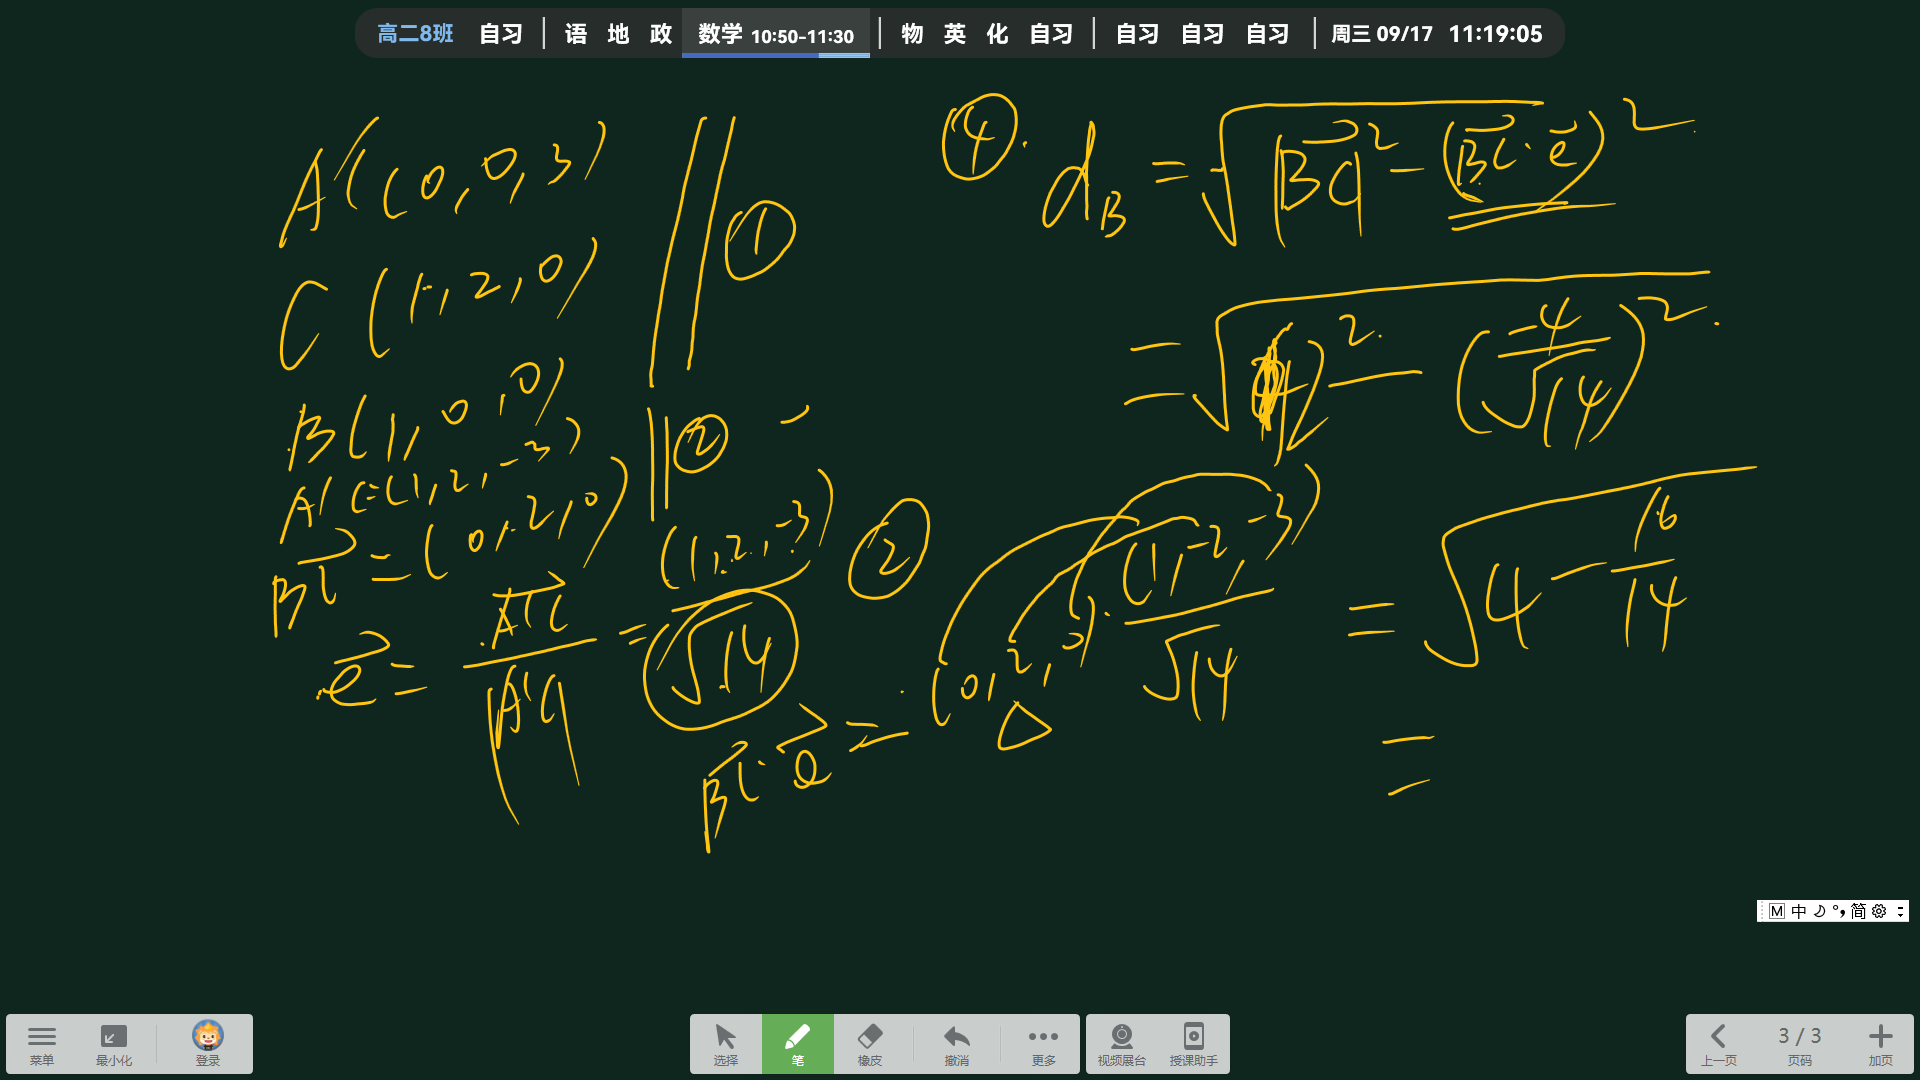 高二8班 自习 | 语 地 政 数学 10:50-11:30 | 物 英 化 自习 | 自习 自习 自习 | 周三 09/17 11:19:05
A'(0,0,3)
C(1,2,0)
①
B(1,0,0)
A'C=(1,2,-3)
②
BC=(0,2,0)
e=A'C/|A'C|=(1,2,-3)/√14
②
BC·e=(0,2,0)·(1,-2,-3)/√14
④. d_B=√(|BC|²-(BC·e)²)
=√(4)²-(-4/√14)²
=√(4-16/14)
=
M 中 简
菜单 最小化 登录
选择 笔 橡皮 撤消 更多
视频展台 授课助手
上一页 3 / 3 页码 加页